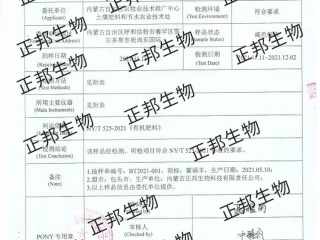 委托单位
(Applicant)
内蒙古自治区农牧业技术推广中心
土壤肥料和节水农业技术处
检测环境
(Test Environment)
符合要求
内蒙古自治区呼和浩特市赛罕区鄂
尔多斯东街尚东国际
样品状态
(Sample Status)
到样日期
检测日期
(Test Date)
11-2021.12.02
(Test Methods)
见附表
所用主要仪器
(Main Instruments)
见附表
NY/T 525-2021《有机肥料》
检测结论
(Test Conclusion)
该样品经检测,所检项目符合 NY/T 525-2021 标准的要求。
备注
(Note)
1.抽样单编号:BT2021-001,商标:蒙福丰,生产日期:2021.05.10;
2.盟市:包头市,生产单位:内蒙古正邦生物科技有限责任公司;
3.以上样品信息由委托单位提供。
PONY 专用章
审核人
(Checked by)
正邦生物
正邦生物
正邦生物
正邦生物
正邦生物
正邦生物
正邦生物
正邦生物